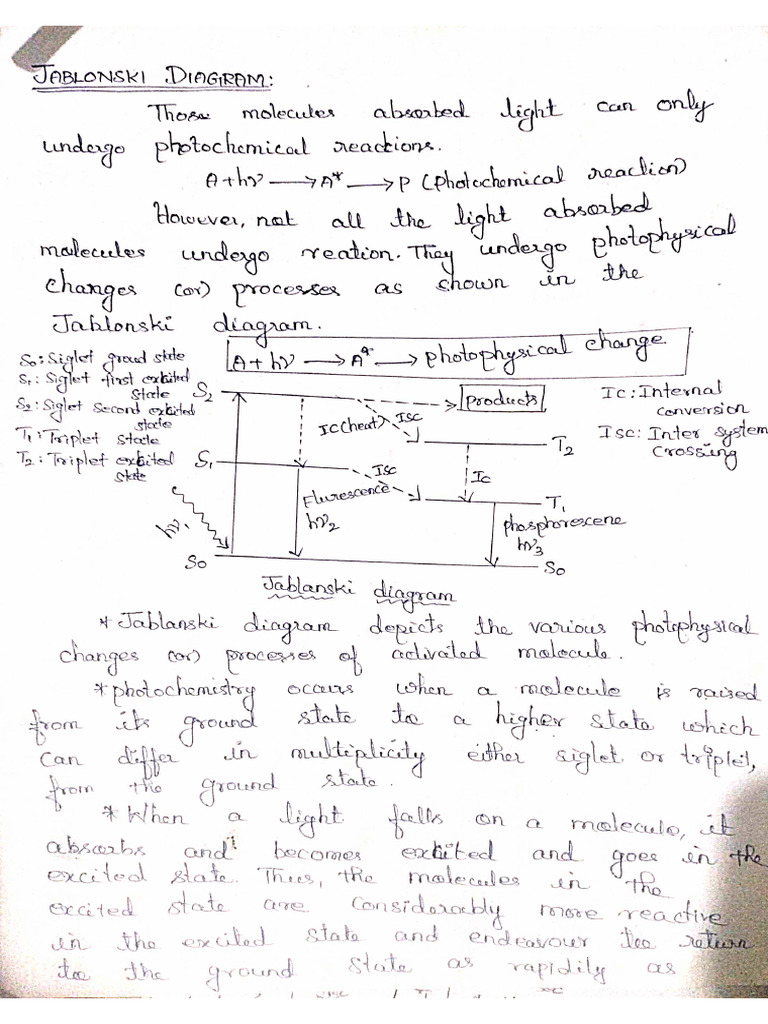 JABLONSKI DIAGRAM:
Those molecules absorbed light can only
undergo photochemical reactions.
A + hν ⟶ A* ⟶ P (photochemical reaction)
However, not all the light absorbed
molecules undergo reation. They undergo photophysical
changes (or) processes as shown in the
Jablonski diagram.
A + hν ⟶ A* ⟶ photophysical change.
S0: Siglet ground state
S1: Siglet first exbited
state
S2: Siglet Second exbited
state
T1: Triplet state
T2: Triplet exbited
state
S2
products
Ic: Internal
conversion
Isc: Inter system
Crossing
Ic(heat)
Isc
T2
S1
Isc
Ic
Flurescence
hν2
T1
hν1
phosphorescene
hν3
S0
S0
Jablanski diagram
* Jablanski diagram depicts the various photophysical
changes (or) processes of activated molecule.
* photochemistry occurs when a molecule is raised
from its ground state to a higher state which
can differ in multiplicity either siglet or triplet,
from the ground state.
* When a light falls on a molecule, it
absorbs and becomes exbited and goes in the
excited state. Thus, the molecules in the
excited state are considerably more reactive
in the excited state and endeavour too return
too the ground state as rapidily as